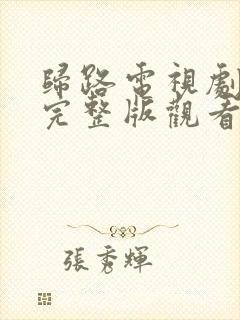 歸路電視劇
完整版觀看
張秀輝